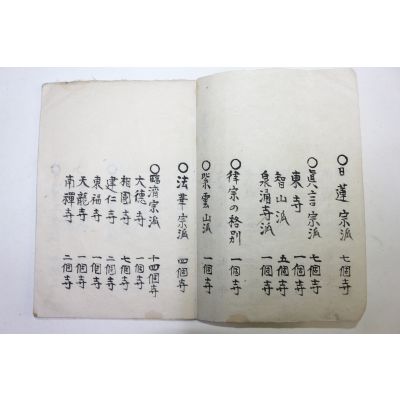 〇日蓮宗派 七個寺
〇眞言宗派 七個寺
東寺 一個寺
智山派 五個寺
泉涌寺派 一個寺
〇律宗の格別 一個寺
〇紫雲山派 一個寺
〇法華宗派 四個寺
〇臨済宗派 十四個寺
大徳寺 一個寺
相國寺 七個寺
建仁寺 二個寺
東福寺 一個寺
天龍寺 一個寺
南禪寺 二個寺